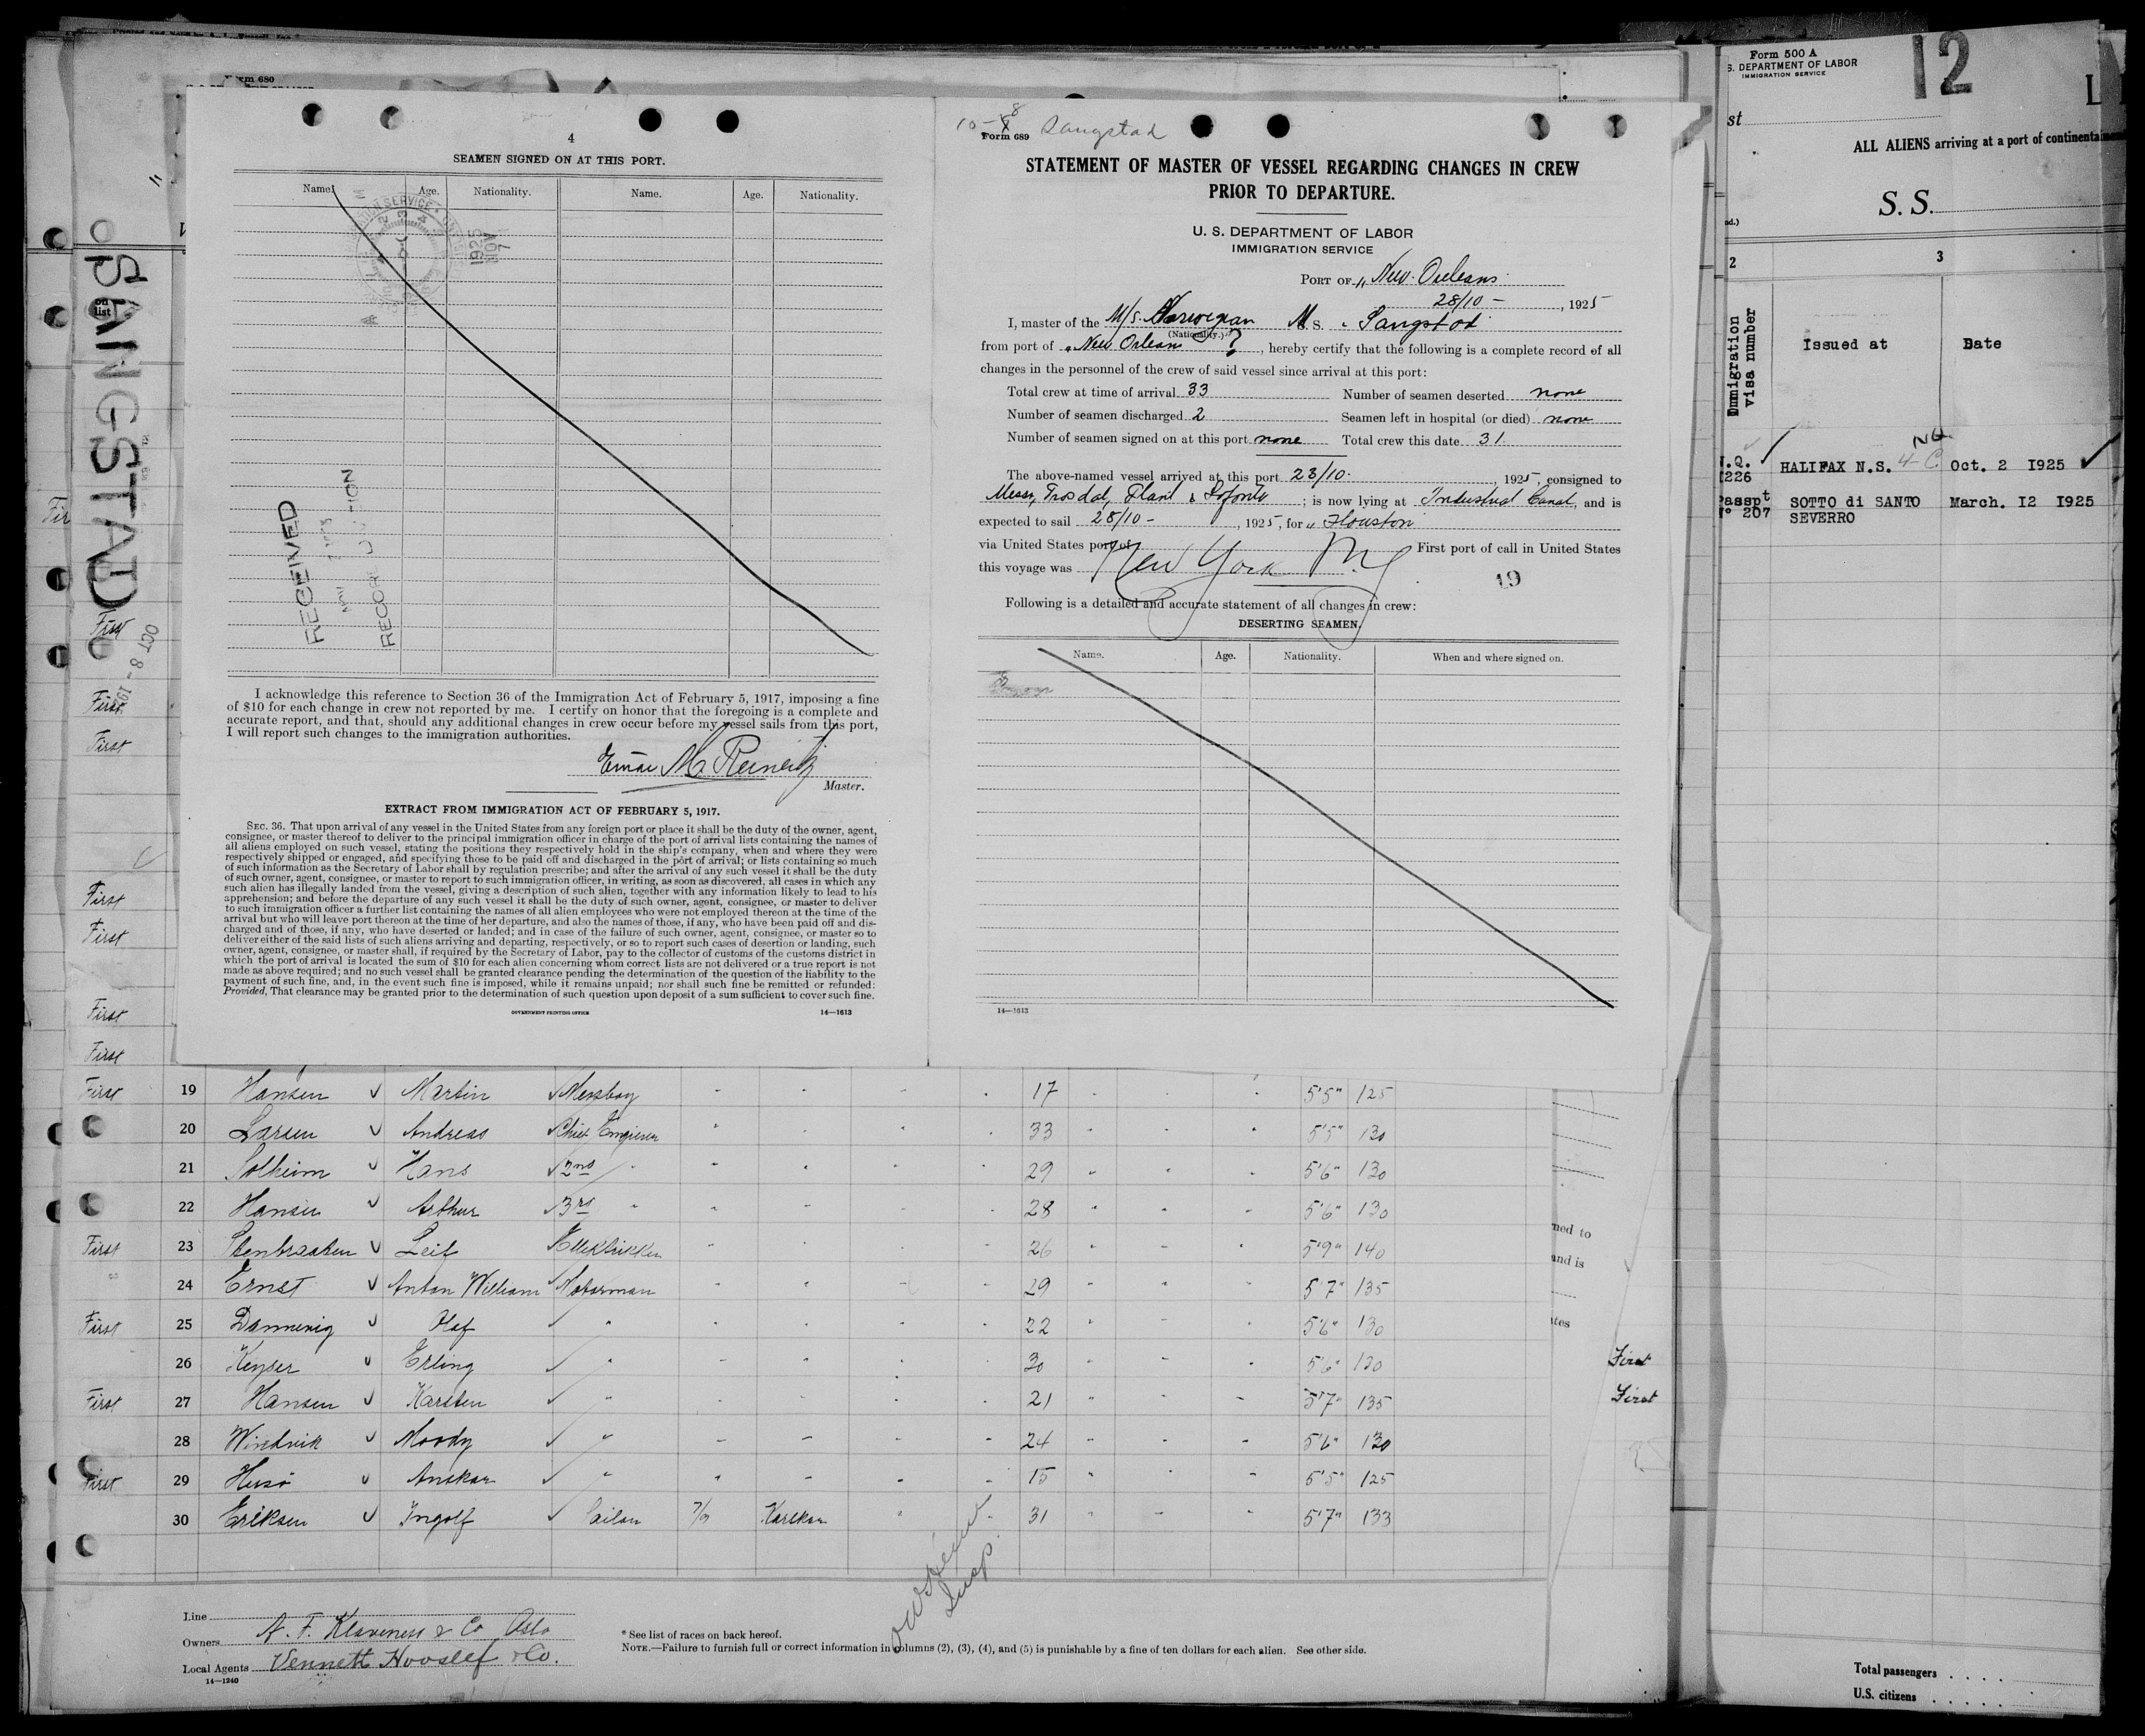 Form 680
4
SEAMEN SIGNED ON AT THIS PORT.
Name. Age. Nationality. Name. Age. Nationality.
1925 NOV 7
RECEIVED
I acknowledge this reference to Section 36 of the Immigration Act of February 5, 1917, imposing a fine
of $10 for each change in crew not reported by me. I certify on honor that the foregoing is a complete and
accurate report, and that, should any additional changes in crew occur before my vessel sails from this port,
I will report such changes to the immigration authorities.
Master.
EXTRACT FROM IMMIGRATION ACT OF FEBRUARY 5, 1917.
SEC. 36. That upon arrival of any vessel in the United States from any foreign port or place it shall be the duty of the owner, agent,
consignee, or master thereof to deliver to the principal immigration officer in charge of the port of arrival lists containing the names of
all aliens employed on such vessel, stating the positions they respectively hold in the ship's company, when and where they were
respectively shipped or engaged, and specifying those to be paid off and discharged in the port of arrival; or lists containing so much
of such information as the Secretary of Labor shall by regulation prescribe; and after the arrival of any such vessel it shall be the duty
of such owner, agent, consignee, or master to report to such immigration officer, in writing, as soon as discovered, all cases in which any
such alien has illegally landed from the vessel, giving a description of such alien, together with any information likely to lead to his
apprehension; and before the departure of any such vessel it shall be the duty of such owner, agent, consignee, or master to deliver
to such immigration officer a further list containing the names of all alien employees who were not employed thereon at the time of the
arrival but who will leave port thereon at the time of her departure, and also the names of those, if any, who have been paid off and dis-
charged and of those, if any, who have deserted or landed; and in case of the failure of such owner, agent, consignee, or master so to
deliver either of the said lists of such aliens arriving and departing, respectively, or so to report such cases of desertion or landing, such
owner, agent, consignee, or master shall, if required by the Secretary of Labor, pay to the collector of customs of the customs district in
which the port of arrival is located the sum of $10 for each alien concerning whom correct lists are not delivered or a true report is not
made as above required; and no such vessel shall be granted clearance pending the determination of the question of the liability to the
payment of such fine, and, in the event such fine is imposed, while it remains unpaid; nor shall such fine be remitted or refunded:
Provided, That clearance may be granted prior to the determination of such question upon deposit of a sum sufficient to cover such fine.
GOVERNMENT PRINTING OFFICE 14—1613
Form 689 Sangstad
STATEMENT OF MASTER OF VESSEL REGARDING CHANGES IN CREW
PRIOR TO DEPARTURE.
U. S. DEPARTMENT OF LABOR
IMMIGRATION SERVICE
PORT OF New Orleans
28/10 - , 1925
I, master of the M/S. Norwegian M. S. Sangstad
(Nationality.)
from port of New Orleans ?, hereby certify that the following is a complete record of all
changes in the personnel of the crew of said vessel since arrival at this port:
Total crew at time of arrival 33 Number of seamen deserted none
Number of seamen discharged 2 Seamen left in hospital (or died) none
Number of seamen signed on at this port none Total crew this date 31.
The above-named vessel arrived at this port 23/10. , 1925, consigned to
Messrs Trosdal, Plant & Lafonta ; is now lying at Industrial Canal, and is
expected to sail 28/10 - , 1925, for Houston
via United States port of First port of call in United States
this voyage was New York
19
Following is a detailed and accurate statement of all changes in crew:
DESERTING SEAMEN.
Name. Age. Nationality. When and where signed on.
14—1613
SANGSTAD
OCT 8 - 19
First
First
First
First
First
First
First
First 19 Hansen Martin Messboy 17 5'5" 125
20 Larsen Andreas Chief Engineer 33 5'5" 130
21 Solheim Hans 2nd " 29 5'6" 130
22 Hansen Arthur 3rd " 28 5'6" 130
First 23 Stenbraaten Leif 26 5'9" 140
24 Ernst Anton William Motorman 29 5'7" 135
First 25 Dannevig Olaf " 22 5'6" 130
26 Keyser Erling " 30 5'6" 130
First 27 Hansen Karsten " 21 5'7" 135
28 Windvik Moody " 24 5'6" 130
First 29 Husö Anskar " 15 5'5" 125
30 Eriksen Ingolf Sailor 7/9 31 5'7" 133
Line
Owners A. F. Klaveness & Co Oslo
Local Agents Bennett Hvoslef & Co.
14—1240
* See list of races on back hereof.
NOTE.—Failure to furnish full or correct information in columns (2), (3), (4), and (5) is punishable by a fine of ten dollars for each alien. See other side.
Insp.
ned to
and is
tes
First
First
Form 500 A
S. DEPARTMENT OF LABOR
IMMIGRATION SERVICE
12
L
st
ALL ALIENS arriving at a port of continental
S. S.
2 3
Immigration visa number Issued at Date
N.Q.
1226 HALIFAX N.S. Oct. 2 1925
Passpt
N° 207 SOTTO di SANTO March. 12 1925
SEVERRO
Total passengers
U.S. citizens